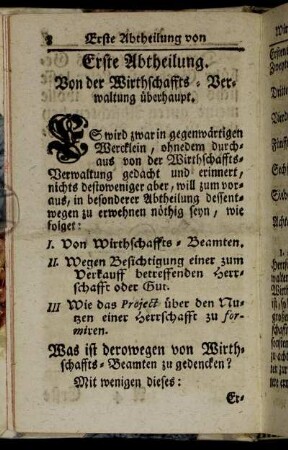 8 Erste Abtheilung von
Erste Abtheilung.
Von der Wirthschaffts - Ver-
waltung überhaupt.
ES wird zwar in gegenwärtigen
Wercklein, ohnedem durch-
aus von der Wirthschaffts-
Verwaltung gedacht und erinnert,
nichts destoweniger aber, will zum vor-
aus, in besonderer Abtheilung dessent-
wegen zu erwehnen nöthig seyn, wie
folget:
I. Von Wirthschaffts - Beamten.
II. Wegen Besichtigung einer zum
Verkauff betreffenden Herr-
schafft oder Gut.
III Wie das Project über den Nu-
tzen einer Herrschafft zu for-
miren.
Was ist derowegen von Wirth-
schaffts-Beamten zu gedencken?
Mit wenigen dieses:
Er-